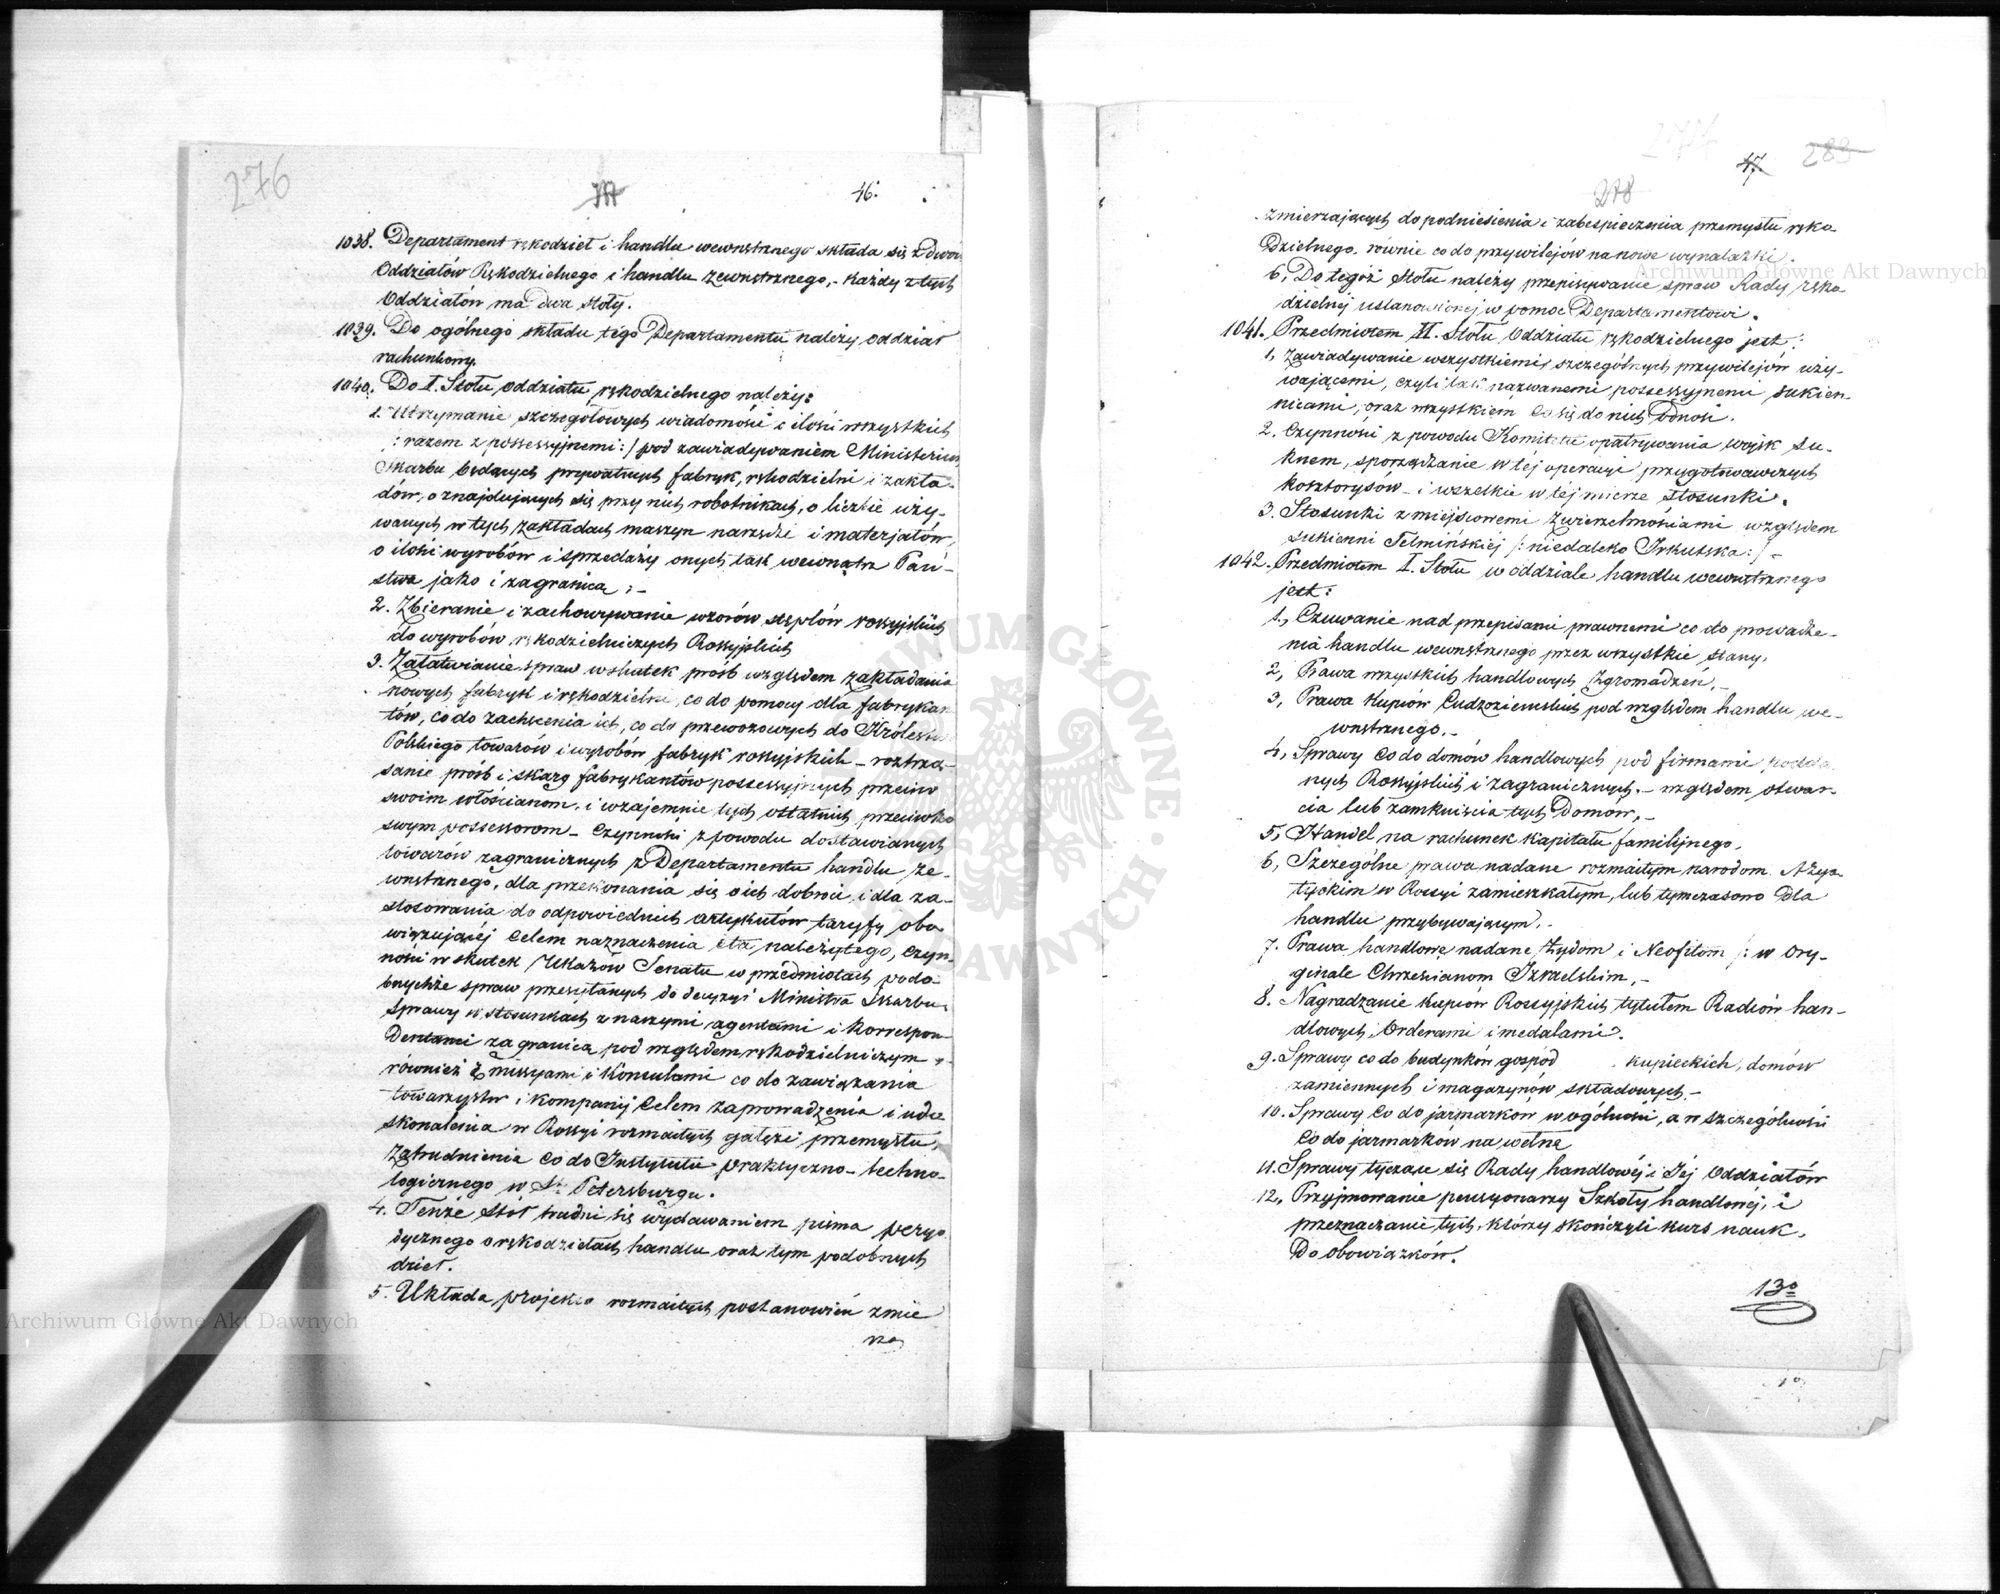 276
46.
1038. Departament rękodzieł i handlu wewnętrznego składa się z dwóch
Oddziałów Rękodzielnego i handlu zewnętrznego, - każdy z tych
Oddziałów ma dwa stoły.
1039. Do ogólnego składu tego Departamentu należy oddział
rachunkowy.
1040. Do I. Stołu oddziału rękodzielnego należy:
1. Utrzymanie szczegółowych wiadomości i ilości wszystkich
/: razem z possessyjnemi :/ pod zawiadywaniem Ministerium
Skarbu będących prywatnych fabryk, rękodzielni i zakła-
dów, o znajdujących się przy nich robotnikach, o liczbie uży-
wanych w tych zakładach maszyn narzędzi i materjałów,
o ilości wyrobów i sprzedaży onych tak wewnątrz Pań-
stwa jako i zagranicą ; -
2. Zbieranie i zachowywanie wzorów stęplów rossyjskich
do wyrobów rękodzielniczych Rossyjskich
3. Załatwianie spraw wskutek prósb względem zakładania
nowych fabryk i rękodzielni, co do pomocy dla fabrykan
tów, co do zachęcenia ich, co do przewozowych do Królestwa
Polskiego towarów i wyrobów fabryk rossyjskich - roztrzą-
sanie prósb i skarg fabrykantów possessyjnych przeciw
swoim włościanom, i wzajemnie tych ostatnich przeciwko
swym possessorom - Czynności z powodu dostawianych
towarów zagranicznych z Departamentu handlu ze-
wnętrznego, dla przekonania się o ich dobroci i dla za-
stosowania do odpowiednich artykułów taryfy obo
wiązującéj celem naznaczenia cła należytego, czyn-
ności w skutek Ukazów Senatu w przedmiotach podo-
bnychże spraw przesyłanych do decyzyi Ministra Skarbu,
Sprawy w stosunkach z naszymi agentami i korrespon-
dentami zagranicą pod względem rękodzielniczym -
również z missyami i Konsulami co do zawiązania
towarzystw i kompanij celem zaprowadzenia i udo
skonalenia w Rossyi rozmaitych gałęzi przemysłu,
Zatrudnienia co do Instytutu praktyczno - techno-
logicznego w St. Petersburgu.
4. Tenże Stół trudni się wydawaniem pisma peryo
dycznego o rękodziełach handlu oraz tym podobnych
dzieł.
5. Układa projekta rozmaitych postanowień zmie
rza
47. 283
278
zmierzających do podniesienia i zabespieczenia przemysłu ręko-
dzielnego, równie co do przywilejów na nowe wynalazki.
6, Do tegoż Stołu należy przepisywanie spraw Rady ręko-
dzielnéj ustanowionéj w pomoc Departamentowi.
1041. Przedmiotem II. Stołu Oddziału rękodzielnego jest:
1, Zawiadywanie wszystkiemi szczególnych przywilejów uży-
wającemi, czyli tak nazwanemi possessyjnemi sukien-
nicami, oraz wszystkiem co się do nich odnosi.
2. Czynności z powodu Komitetu opatrywania wojsk su-
knem, sporządzanie w téj operacyi przygotowawczych
kosztorysów - i wszelkie w téj mierze stosunki.
3. Stosunki z miejscowemi zwierzchnościami względem
sukienni Telmińskiéj /: niedaleko Irkutska :/ -
1042. Przedmiotem I. Stołu w oddziale handlu wewnętrznego
jest:
1., Czuwanie nad przepisami prawnemi co do prowadze-
nia handlu wewnętrznego przez wszystkie stany,
2, Prawa wszystkich handlowych Zgromadzeń, -
3, Prawa Kupców Cudzoziemskich pod względem handlu we-
wnętrznego. -
4, Sprawy co do domów handlowych pod firmami podda
nych Rossyjskich i zagranicznych, - względem otwar-
cia lub zamknięcia tych Domów, -
5, Handel na rachunek kapitału familijnego.
6, Szczególne prawa nadane rozmaitym narodom Azya
tyckim w Rossyi zamieszkałym, lub tymczasowo dla
handlu przybywającym. -
7. Prawa handlowe nadane Żydom i Neofitom /: w ory-
ginale Chrześcianom Izraelskim, -
8. Nagradzanie kupców Rossyjskich tytułem Radców han-
dlowych, Orderami i medalami.
9. Sprawy co do budynków gospód kupieckich, domów
zamiennych i magazynów składowych. -
10. Sprawy co do jarmarków w ogólności, a w szczególności
co do jarmarków na wełnę
11. Sprawy tyczące się Rady handlowéj i Jéj Oddziałów
12, Przyjmowanie pensyonarzy Szkoły handlowéj, i
przeznaczanie tych, którzy skończyli kurs nauk,
do obowiązków.
13º
Archiwum Główne Akt Dawnych
Archiwum Główne Akt Dawnych
ARCHIWUM GŁÓWNE AKT DAWNYCH